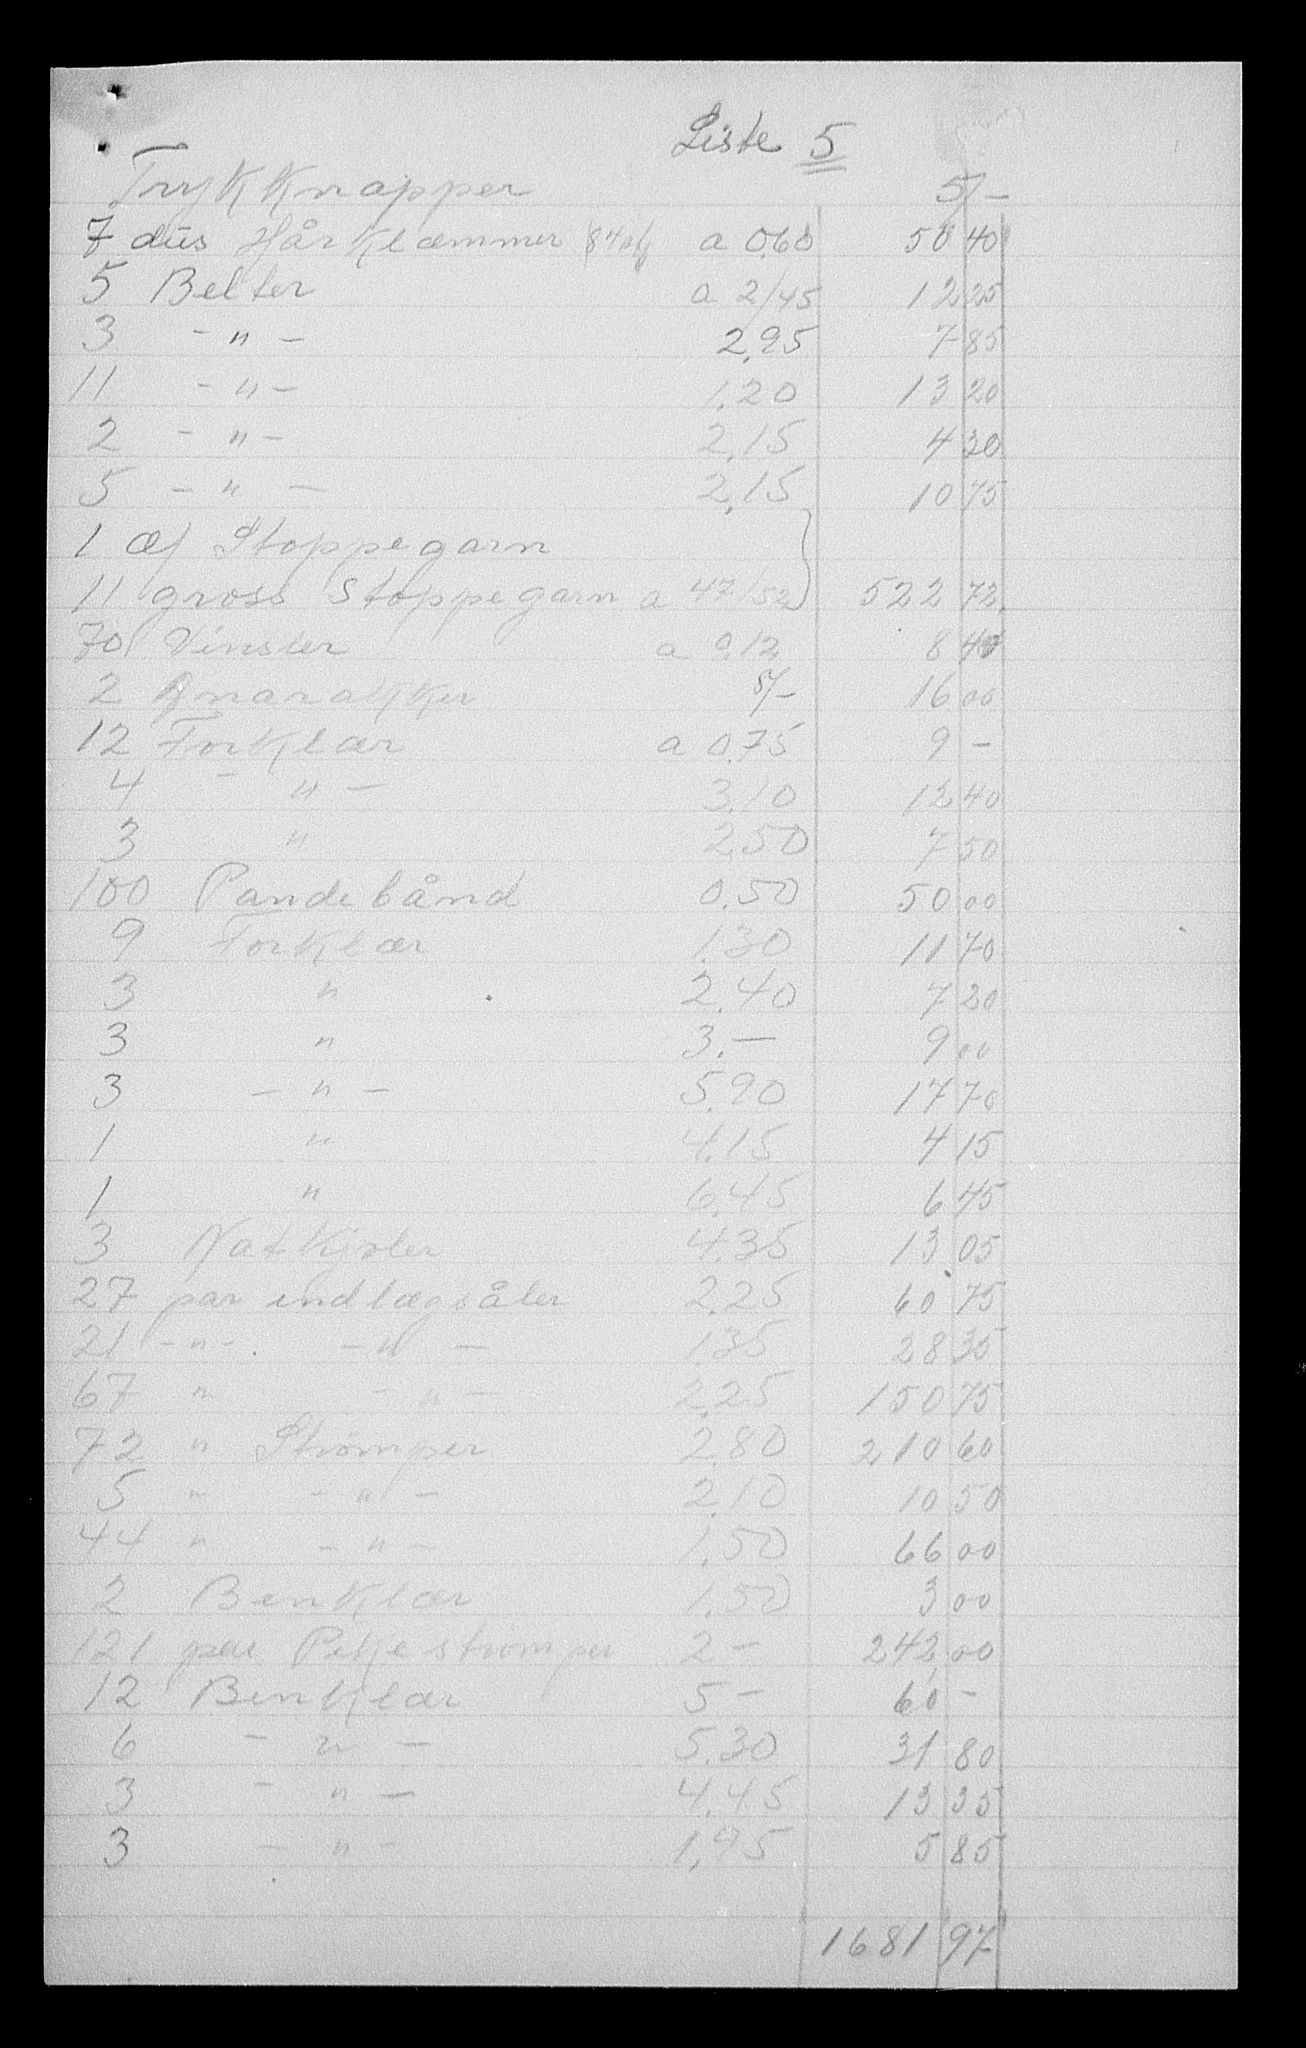 Liste 5
Trykknapper 5/-
7 dus Hårklæmmer a 0,60 50 40
5 Belter a 2/45 12 25
3 -"- 2,95 7 85
11 -"- 1,20 13 20
2 -"- 2,15 4 30
5 -"- 2,15 10 75
1 æ/ Stoppegarn
11 gross Stoppegarn a 47/52 522 72
70 Vinsler a 0,12 8 40
2 Anarakker 8/- 16 00
12 Forklær a 0,75 9 -
4 -"- 3,10 12 40
3 " 2,50 7 50
100 Pandebånd 0,50 50 00
9 Forklær 1,30 11 70
3 " 2,40 7 20
3 " 3.- 9 00
3 -"- 5,90 17 70
1 " 4,15 4 15
1 " 6,45 6 45
3 Natkjoler 4,35 13 05
27 par endlægsåler 2,25 60 75
21 -"- -"- 1,35 28 35
67 " -"- 2,25 150 75
72 " Strømper 2,80 210 60
5 " -"- 2,10 10 50
44 " -"- 1,50 66 00
2 Benklær 1,50 3 00
121 par Pikestrømper 2- 242,00
12 Benklær 5- 60 -
6 -"- 5,30 31 80
3 -"- 4,45 13 35
3 -"- 1,95 5 85
1681 97